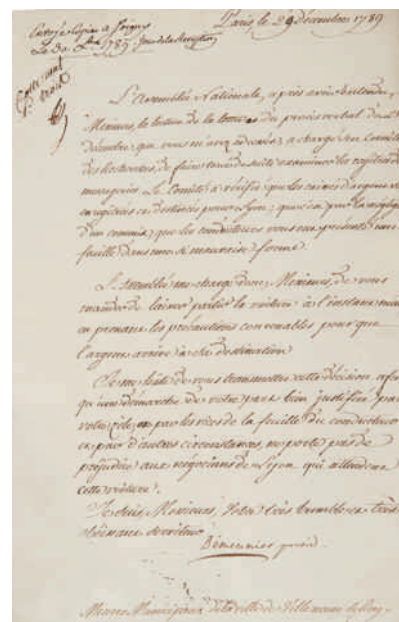 Paris, le 29 décembre 1789
Envoyé Copie à Joigny
Le 30 Xbre 1789. jour de la Reception
L'Assemblée Nationale, après avoir entendu,
Messieurs, la lecture de la lettre et du procès verbal du
décembre, que vous m'avez adressés, a chargé son Comité
des Recherches, de faire tout de suite examiner les registres des
messageries. Le Comité a vérifié que les caisses d'argent
enregistrées et destinées pour Lyon; que c'est par la néglig
d'un commis, que les conducteurs vous ont présenté une
feuille dans une mauvaise forme.
L'Assemblée me charge donc, Messieurs, de vous
mander de laisser partir la voiture à l'instant même
en prenant les précautions convenables pour que
l'argent arrive à sa destination.
Je me hâte de vous transmettre cette décision, afin
qu'une démarche de votre part bien justifiée par
votre zèle, et par les vices de la feuille du conducteur
et par d'autres circonstances, ne porte pas de
préjudice aux négocians de Lyon qui attendent
cette voiture.
Je suis, Messieurs, Votre très humble et très
obéissant serviteur
Démeunier présid.
Municipaux de la ville de Villeneuve